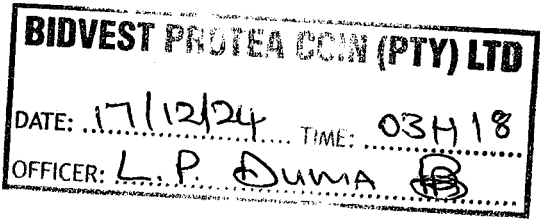 BIDVEST PROTEA COIN (PTY) LTD
DATE: 17/12/24 TIME: 03H18
OFFICER: L.P. DUMA